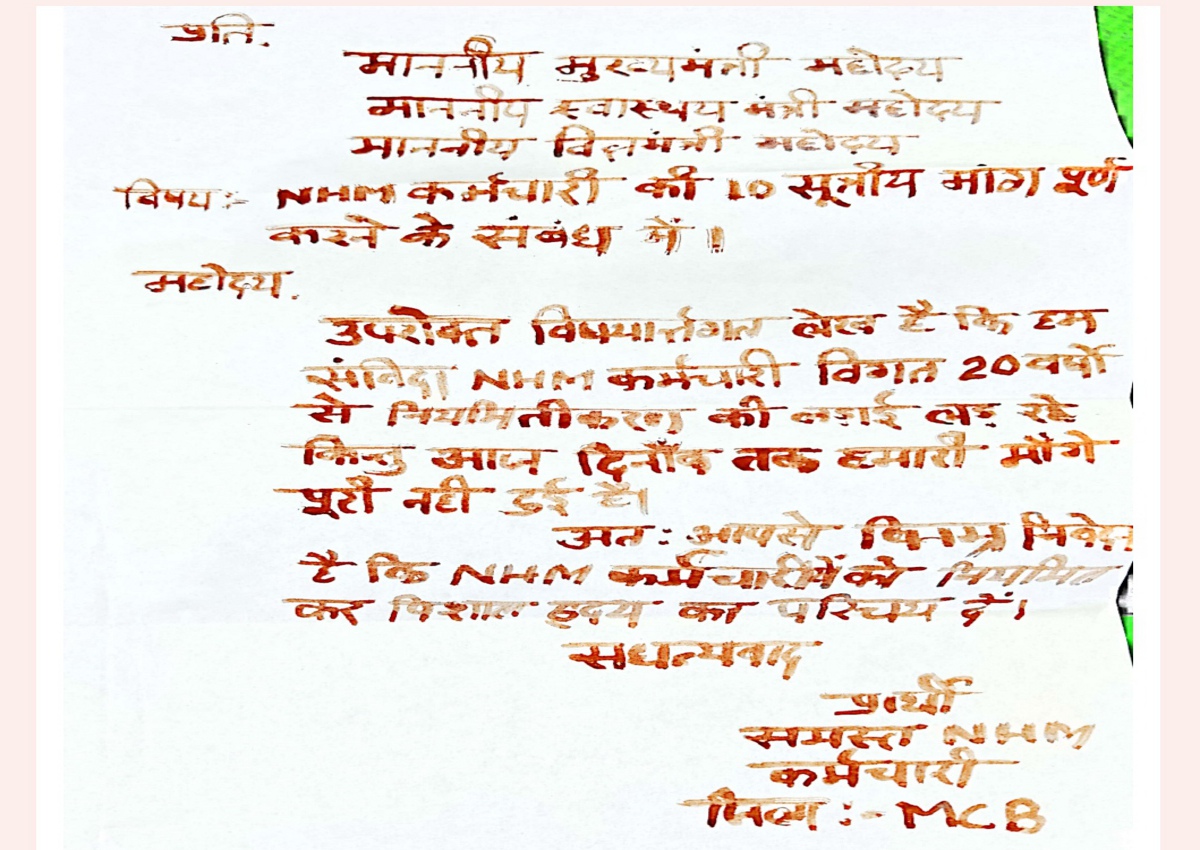 प्रति,
माननीय मुख्यमंत्री महोदय
माननीय स्वास्थय मंत्री महोदय
माननीय वित्तमंत्री महोदय
विषय:- NHM कर्मचारी की 10 सूत्रीय मांग पूर्ण
करने के संबंध में।
महोदय,
उपरोक्त विषयार्न्तगत लेख है कि हम
संविदा NHM कर्मचारी विगत 20 वर्षो
से नियमितीकरण की लड़ाई लड़ रहे
किन्तु आज दिनाँक तक हमारी माँगे
पूरी नही हुई है।
अत: आपसे विनम्र निवेदन
है कि NHM कर्मचारीयों को नियमित
कर विशाल हृदय का परिचय दें।
सधन्यवाद
प्रार्थी
समस्त NHM
कर्मचारी
जिला :- MCB